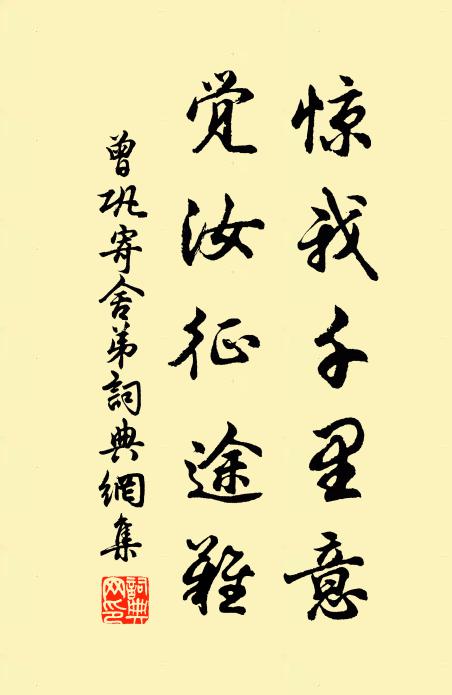 惊我千里意
觉汝征途难
曾巩寄舍弟詞典網集
詞典网印